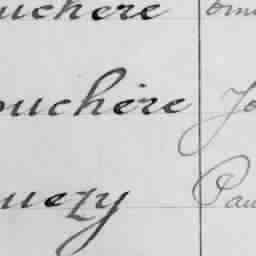 uchère
ouchère Jo
uezy Pau